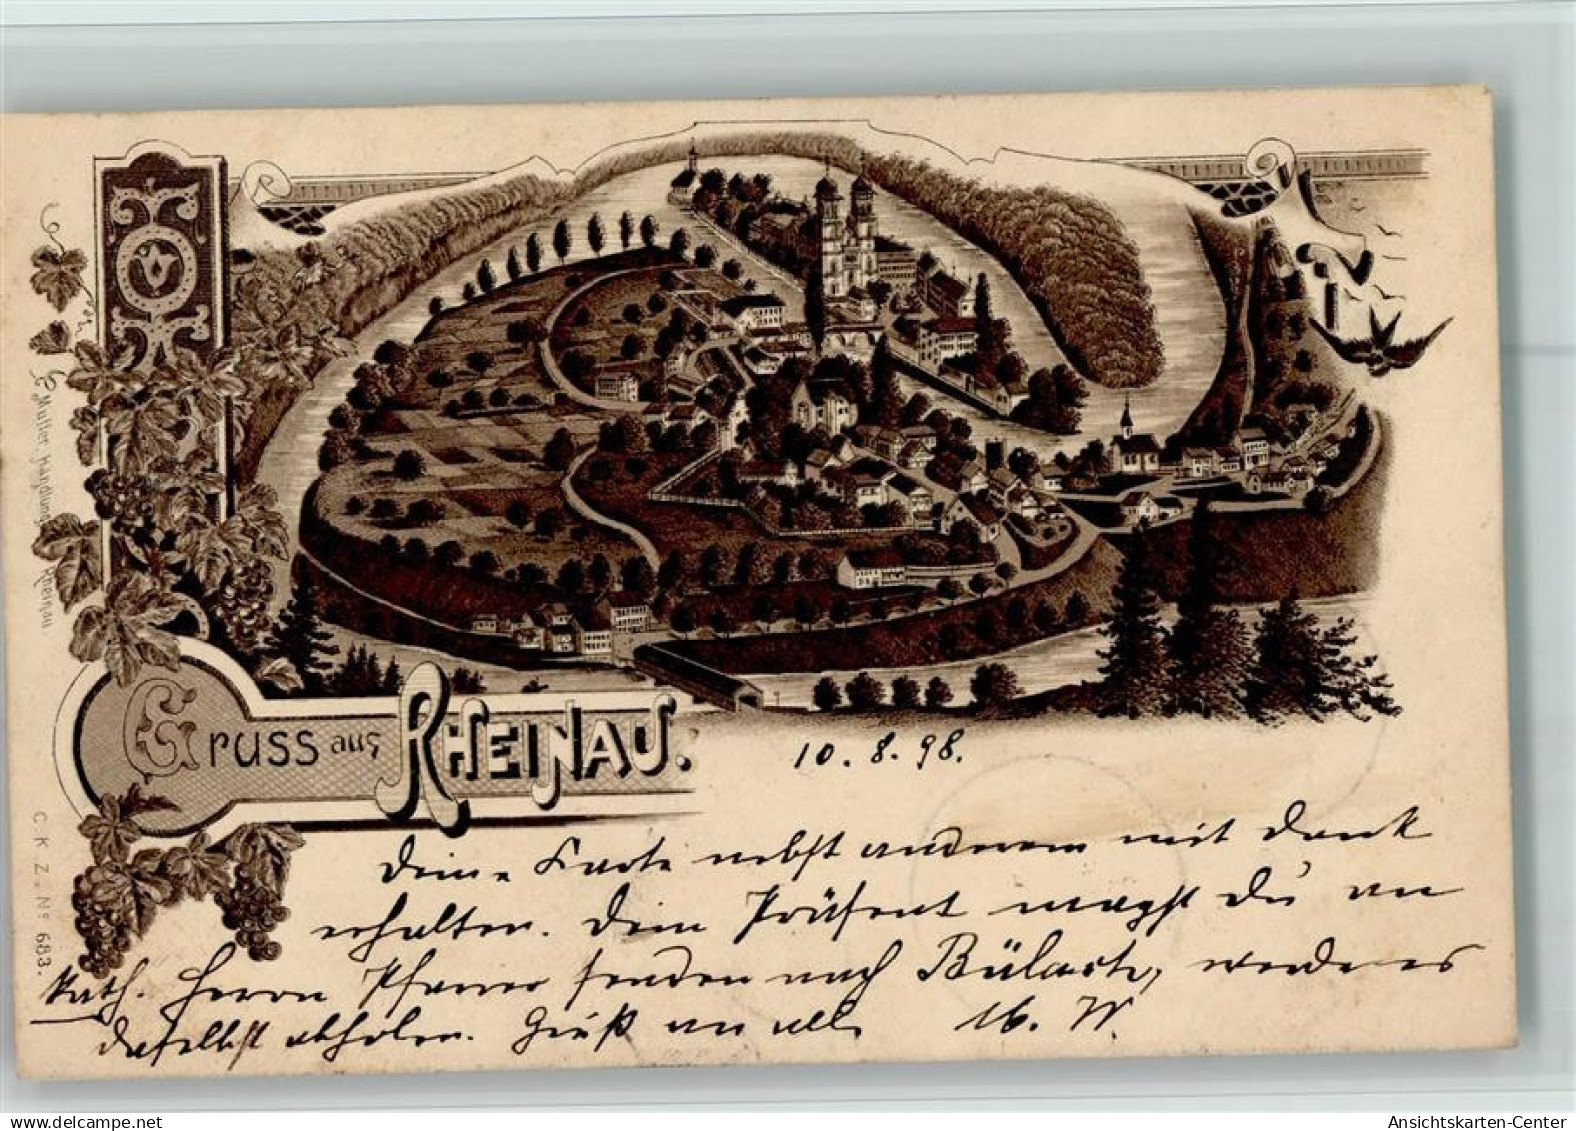 Gruss aus Rheinau.
10. 8. 98.
Deine Karte nebst anderem mit Dank
erhalten. Dein Präsent magst Du an
kath. Herrn Pfarrer senden nach Bülach, werde es
daselbst abholen. Gruß an alle
C. K. Z. Nº 683.
Müller, Handlung, Rheinau
Ansichtskarten-Center